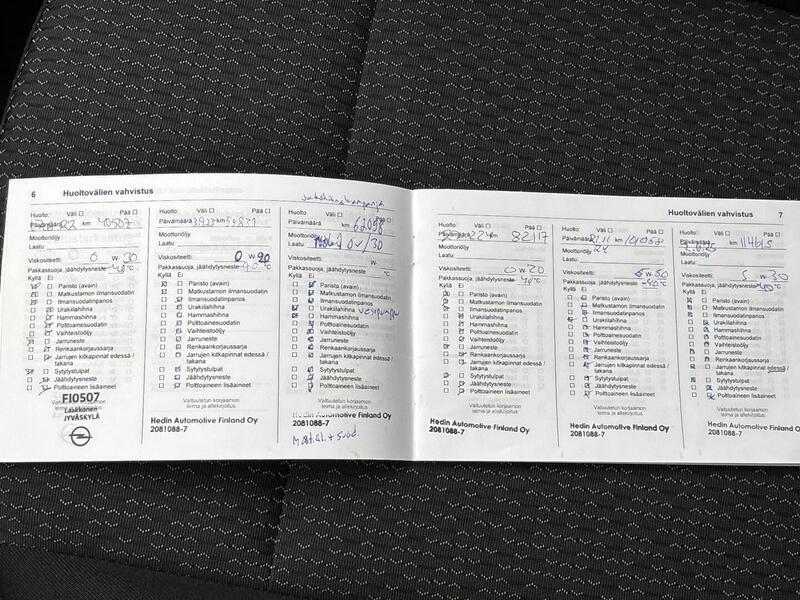 6 Huoltovälien vahvistus
Huolto: Väli ☐ Pää ☐
Päivämäärä 22 km 40507
Moottoriöljy
Laatu
Viskositeetti 0 W- 30
Pakkassuoja, jäähdytysneste -40 °C
Kyllä Ei
Paristo (avain)
Matkustamon ilmansuodatin
Ilmansuodatinpanos
Urakiilahihna
Hammashihna
Polttoainesuodatin
Vaihteistoöljy
Jarruneste
Renkaankorjaussarja
Jarrujen kitkapinnat edessä /
takana
Sytytystulpat
Jäähdytysneste
Polttoaineen lisäaineet
FI0507
Laakkonen
JYVÄSKYLÄ
Huolto: Väli ☐ Pää ☐
Päivämäärä 3923 km 54831
Moottoriöljy
Laatu
Viskositeetti 0 W- 20
Pakkassuoja, jäähdytysneste -40 °C
Kyllä Ei
Paristo (avain)
Matkustamon ilmansuodatin
Ilmansuodatinpanos
Urakiilahihna
Hammashihna
Polttoainesuodatin
Vaihteistoöljy
Jarruneste
Renkaankorjaussarja
Jarrujen kitkapinnat edessä /
takana
Sytytystulpat
Jäähdytysneste
Polttoaineen lisäaineet
Valtuutetun korjaamon
leima ja allekirjoitus
Hedin Automotive Finland Oy
2081088-7
Huolto: Väli ☐ Pää ☐
km 62098
0W/30
°C
Kyllä Ei
Paristo (avain)
Matkustamon ilmansuodatin
Ilmansuodatinpanos
Urakiilahihna vesipumppu
Hammashihna
Polttoainesuodatin
Vaihteistoöljy
Jarruneste
Renkaankorjaussarja
Jarrujen kitkapinnat edessä /
takana
Sytytystulpat
Jäähdytysneste
Polttoaineen lisäaineet
Valtuutetun korjaamon
leima ja allekirjoitus
Hedin Automotive Finland Oy
2081088-7
Huoltovälien vahvistus 7
Huolto: Väli ☐ Pää ☐
Päivämäärä km 82117
Moottoriöljy
Laatu
Viskositeetti 0 W 20
Pakkassuoja, jäähdytysneste -40 °C
Kyllä Ei
Paristo (avain)
Matkustamon ilmansuodatin
Ilmansuodatinpanos
Urakiilahihna
Hammashihna
Polttoainesuodatin
Vaihteistoöljy
Jarruneste
Renkaankorjaussarja
Jarrujen kitkapinnat edessä /
takana
Sytytystulpat
Jäähdytysneste
Polttoaineen lisäaineet
Valtuutetun korjaamon
leima ja allekirjoitus
Hedin Automotive Finland Oy
2081088-7
Huolto: Väli ☐ Pää ☐
Päivämäärä 2111 km 101058
Moottoriöljy 24
Laatu
Viskositeetti
Pakkassuoja, jäähdytysneste -40 °C
Kyllä Ei
Paristo (avain)
Matkustamon ilmansuodatin
Ilmansuodatinpanos
Urakiilahihna
Hammashihna
Polttoainesuodatin
Vaihteistoöljy
Jarruneste
Renkaankorjaussarja
Jarrujen kitkapinnat edessä /
takana
Sytytystulpat
Jäähdytysneste
Polttoaineen lisäaineet
Valtuutetun korjaamon
leima ja allekirjoitus
Hedin Automotive Finland Oy
2081088-7
Huolto: Väli ☐ Pää ☐
Päivämäärä km
Moottoriöljy
Laatu
Viskositeetti 5 W 30
Pakkassuoja, jäähdytysneste °C
Kyllä Ei
Paristo (avain)
Matkustamon ilmansuodatin
Ilmansuodatinpanos
Urakiilahihna
Hammashihna
Polttoainesuodatin
Vaihteistoöljy
Jarruneste
Renkaankorjaussarja
Jarrujen kitkapinnat edessä /
takana
Sytytystulpat
Jäähdytysneste
Polttoaineen lisäaineet
Valtuutetun korjaamon
leima ja allekirjoitus
Hedin Automotive Finland Oy
2081088-7